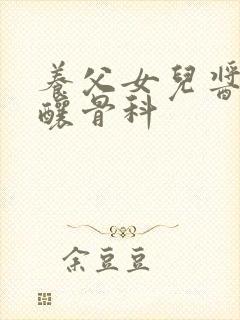 養父女兒醬
釀骨科
余豆豆